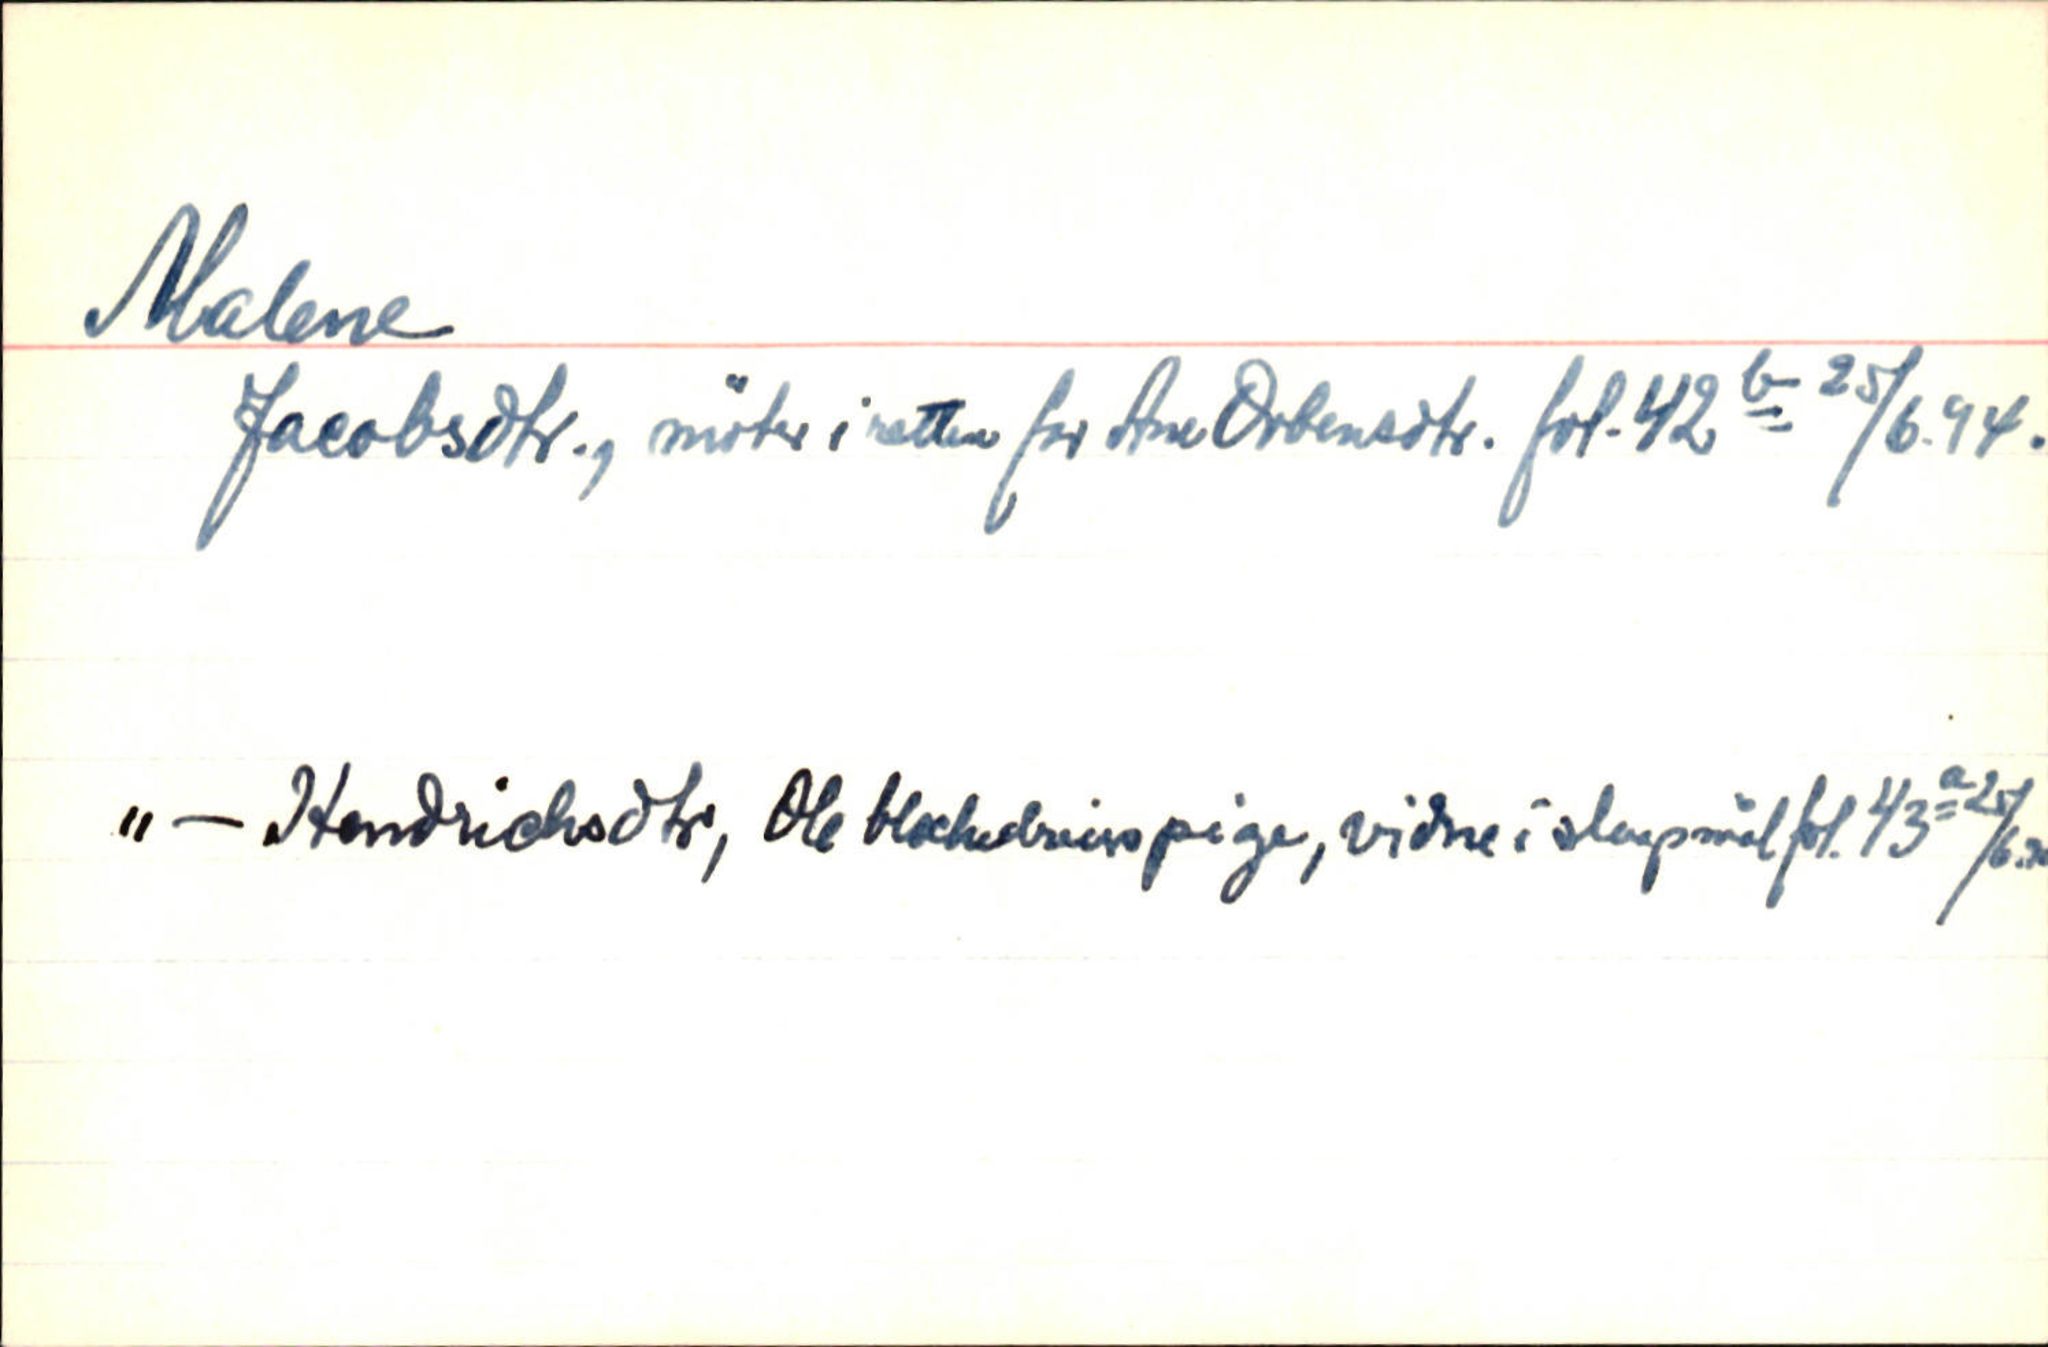 Malene
Jacobsdtr., möter i retten for Ane Orbensdtr. fol. 42 b 25/6.94.
" — Hendrichsdtr, Ole pige, vidne i slagsmål fol. 43 a 25/6.